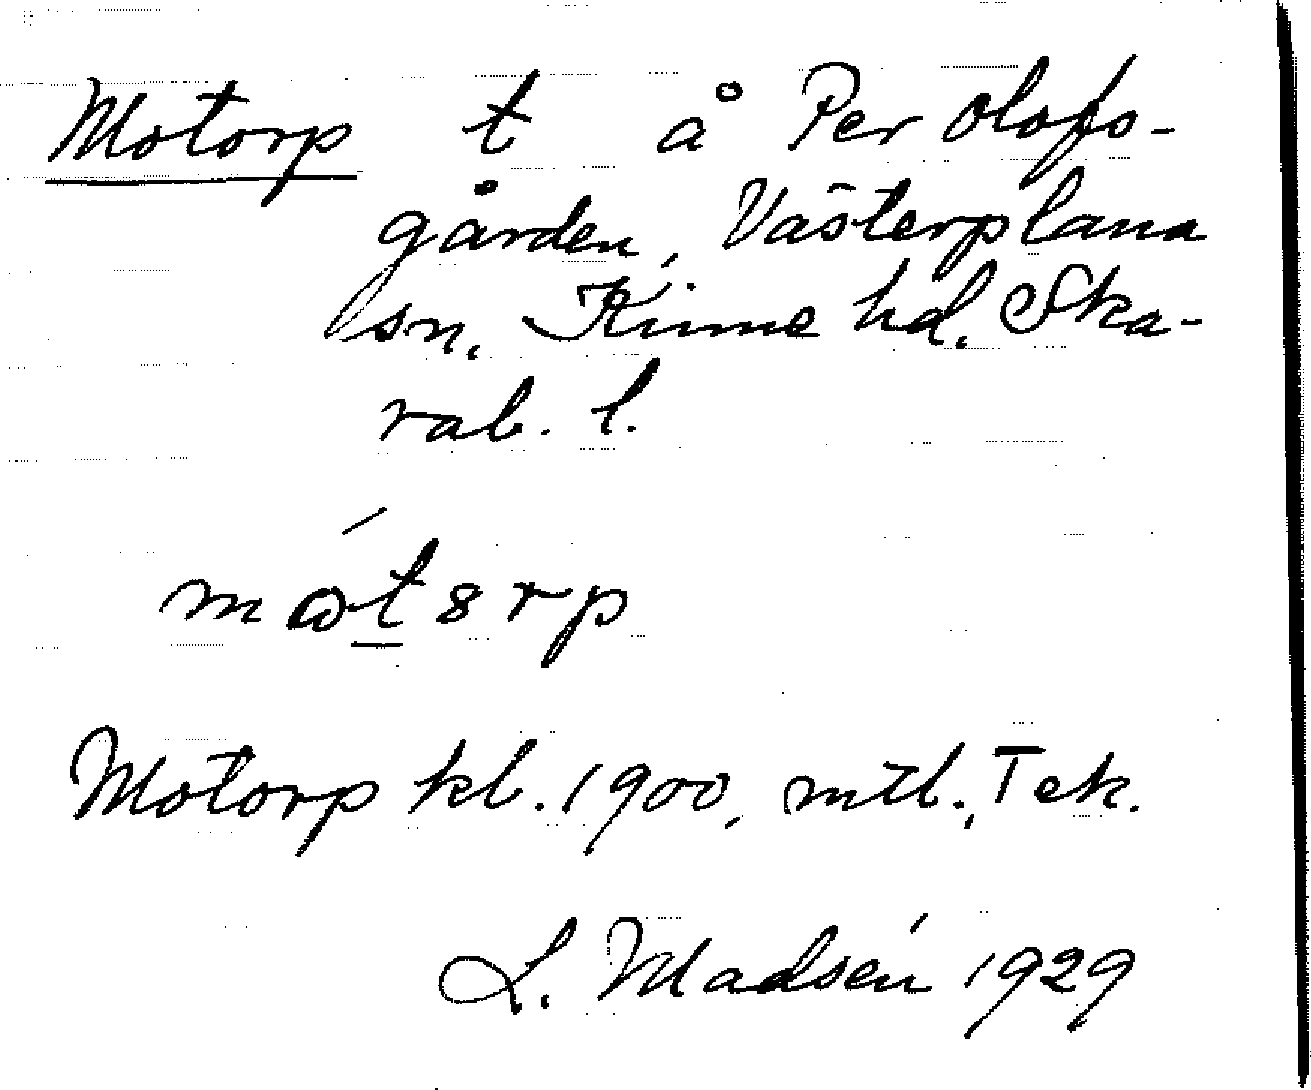 Motorp t å Per Olofs-
gården, Västerplana
sn, Kinne hd. Ska-
rab. l.
Motorp kl. 1900, mtl., Tek.
L. Madsén 1929